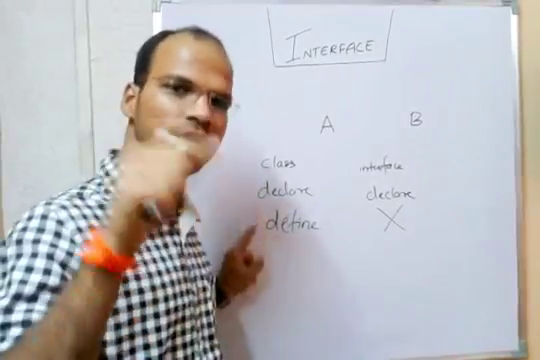 INTERFACE
A B
class interface
declare declare
define X